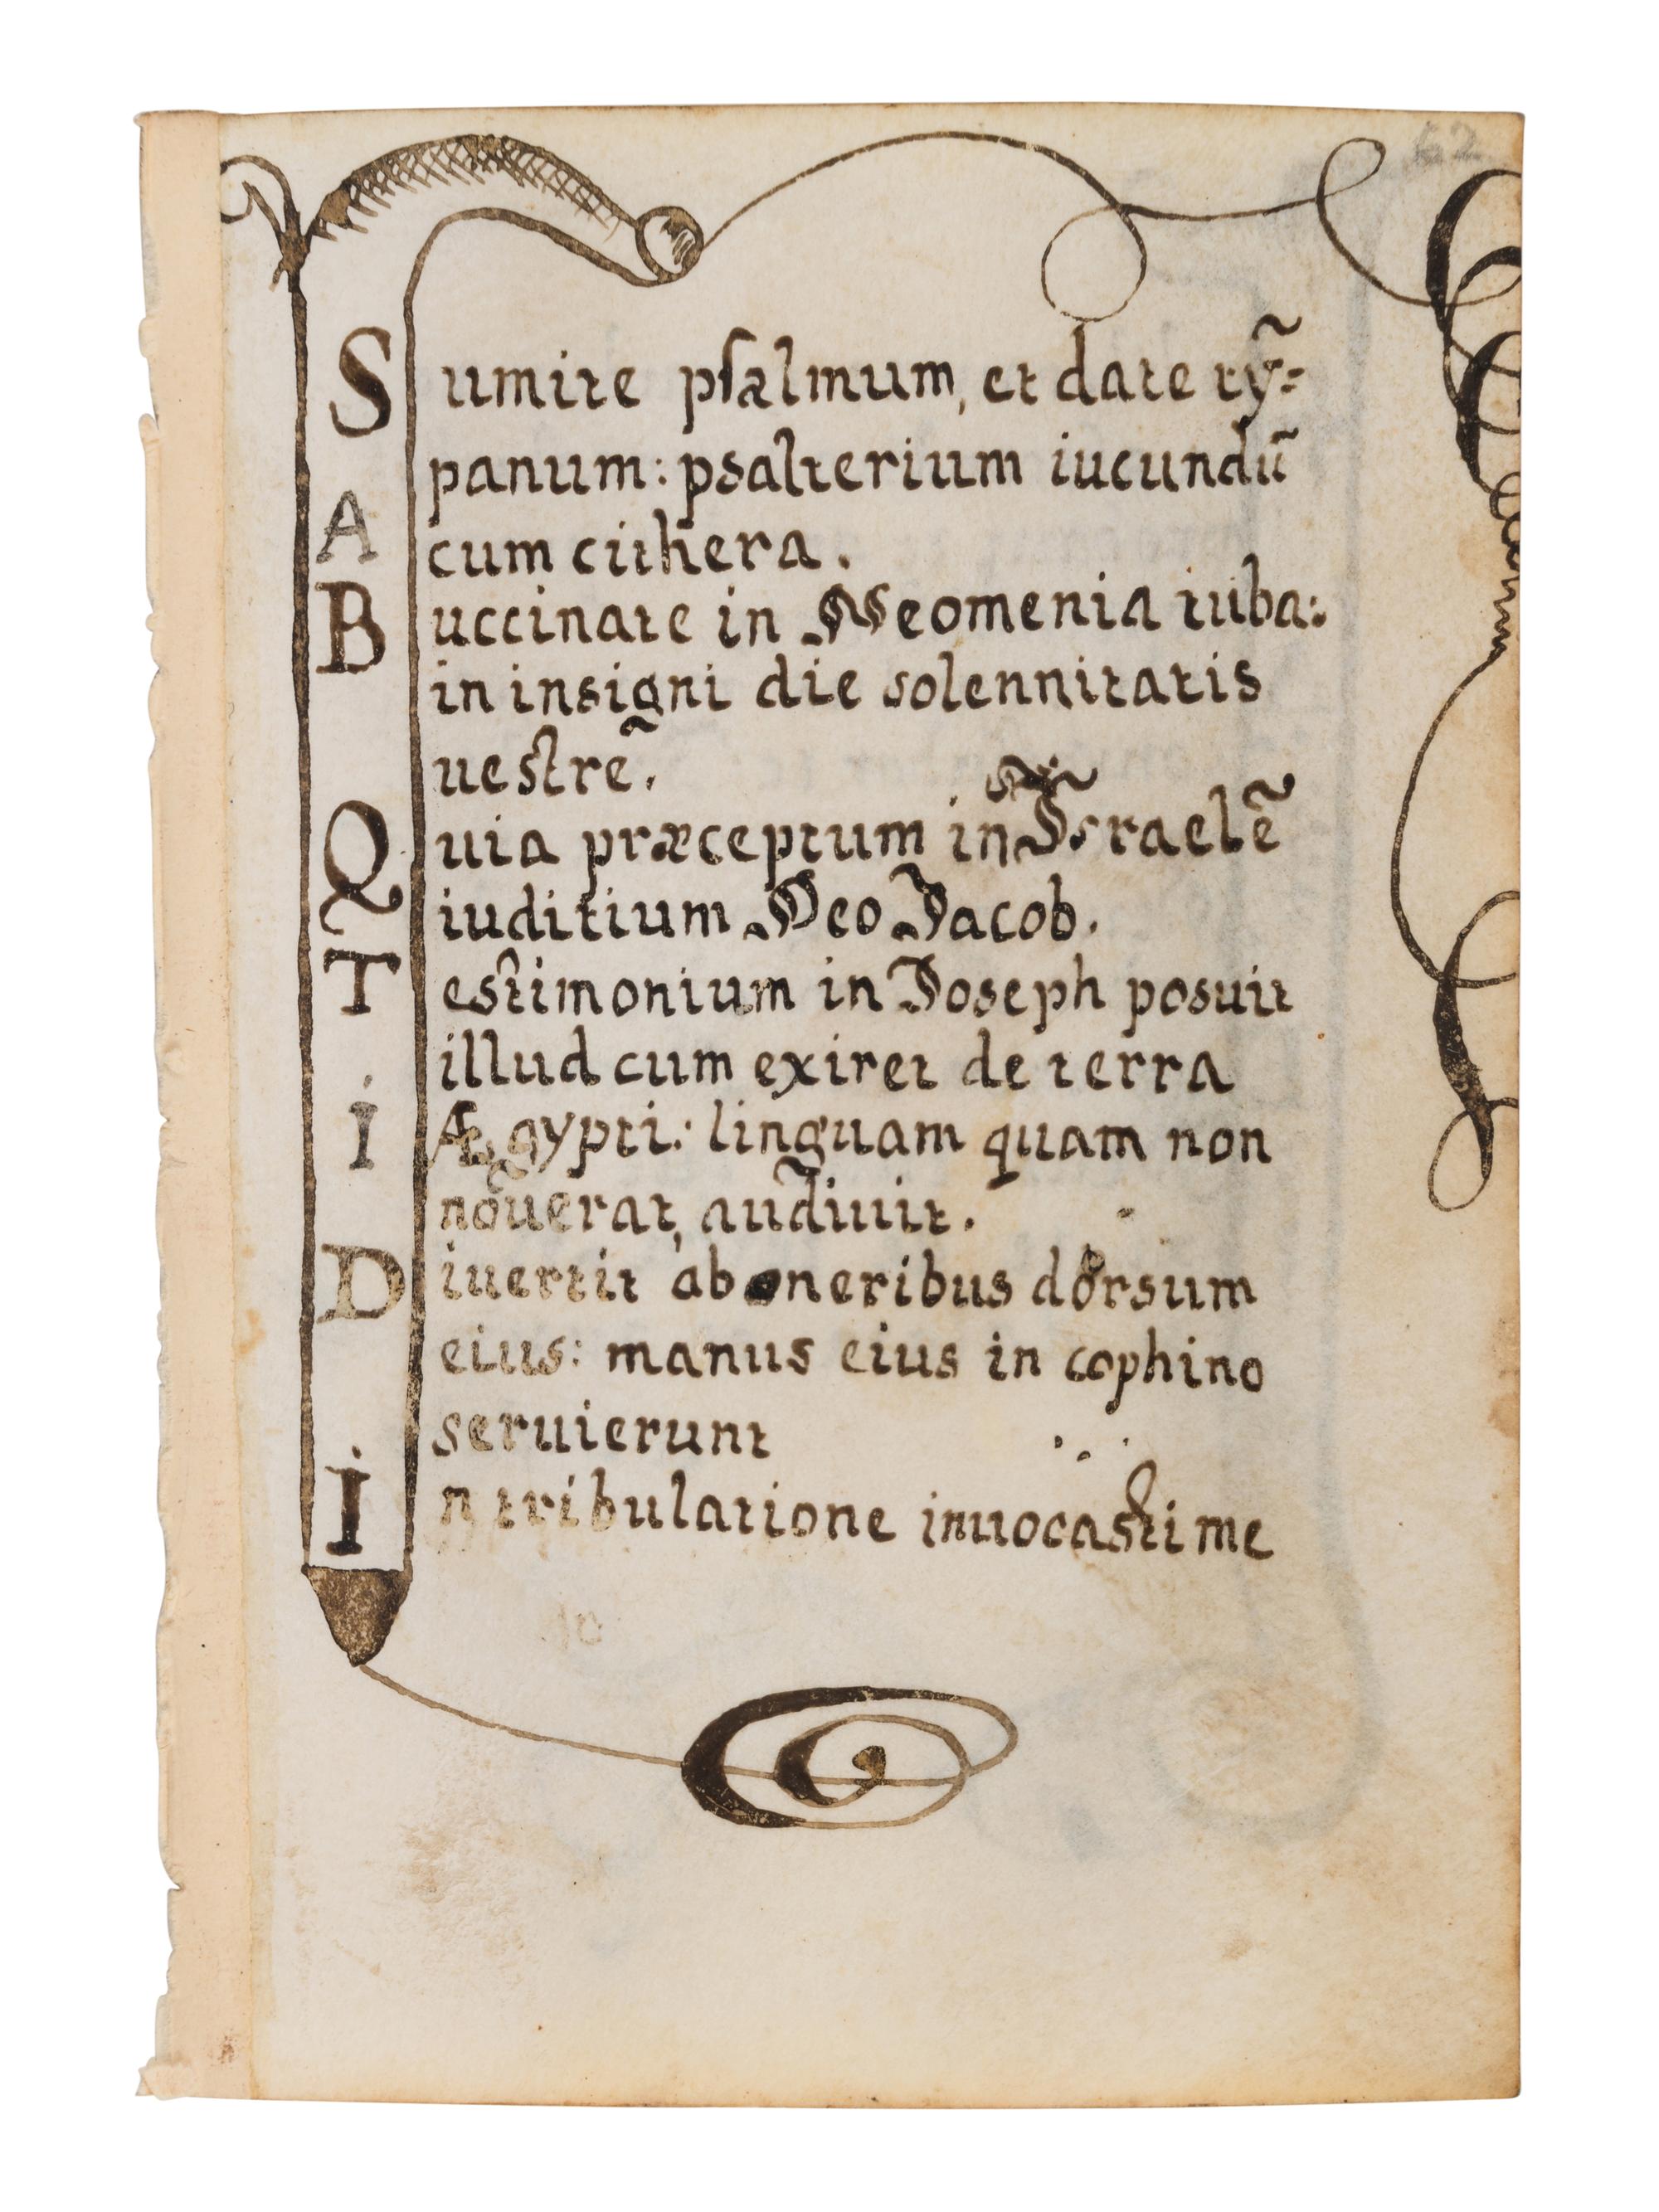 62
Sumite psalmum, et date ty̅=
panum: psalterium iucundu̅
A cum cithera.
Buccinate in Neomenia tuba:
in insigni die solennitatis
uestre̅.
Quia præceptum in Israel e̅
iuditium Deo Jacob.
Testimonium in Joseph posuit
illud cum exiret de terra
I Ægypti: linguam quam non
nouerat, audiuit.
Diuertit ab oneribus dorsum
eius: manus eius in cophino
seruierunt
In tribulatione inuocasti me